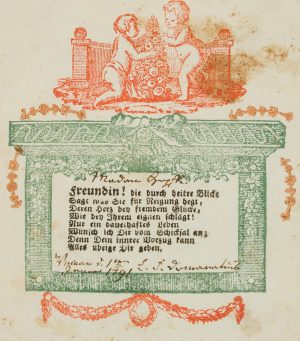 Freundin! die durch heitre Blicke
Sagt was Sie für Neigung hegt,
Deren Herz bey fremdem Glücke,
Wie bey Ihrem eignen schlägt!
Nur ein dauerhaftes Leben
Wunsch ich Dir vom Schicksal an;
Denn Dein innrer Vorzug kann
Alles übrige Dir geben.